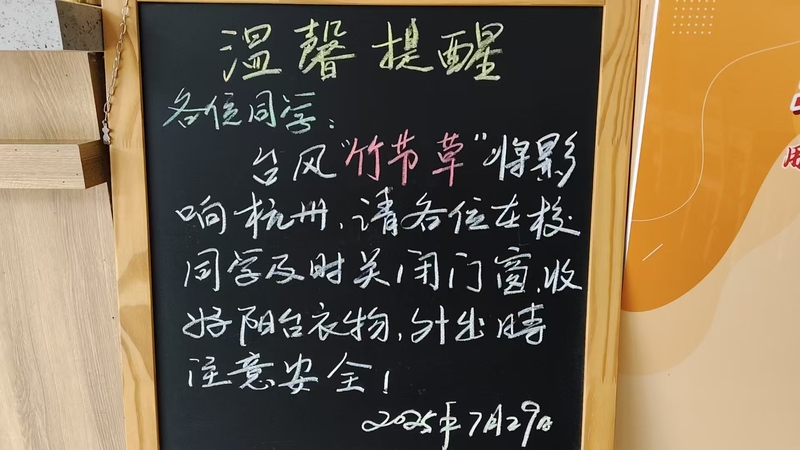 温馨提醒
各位同学:
台风"竹节草"将影
响杭州,请各位在校
同学及时关闭门窗,收
好阳台衣物,外出時
注意安全!
2025年7月29日